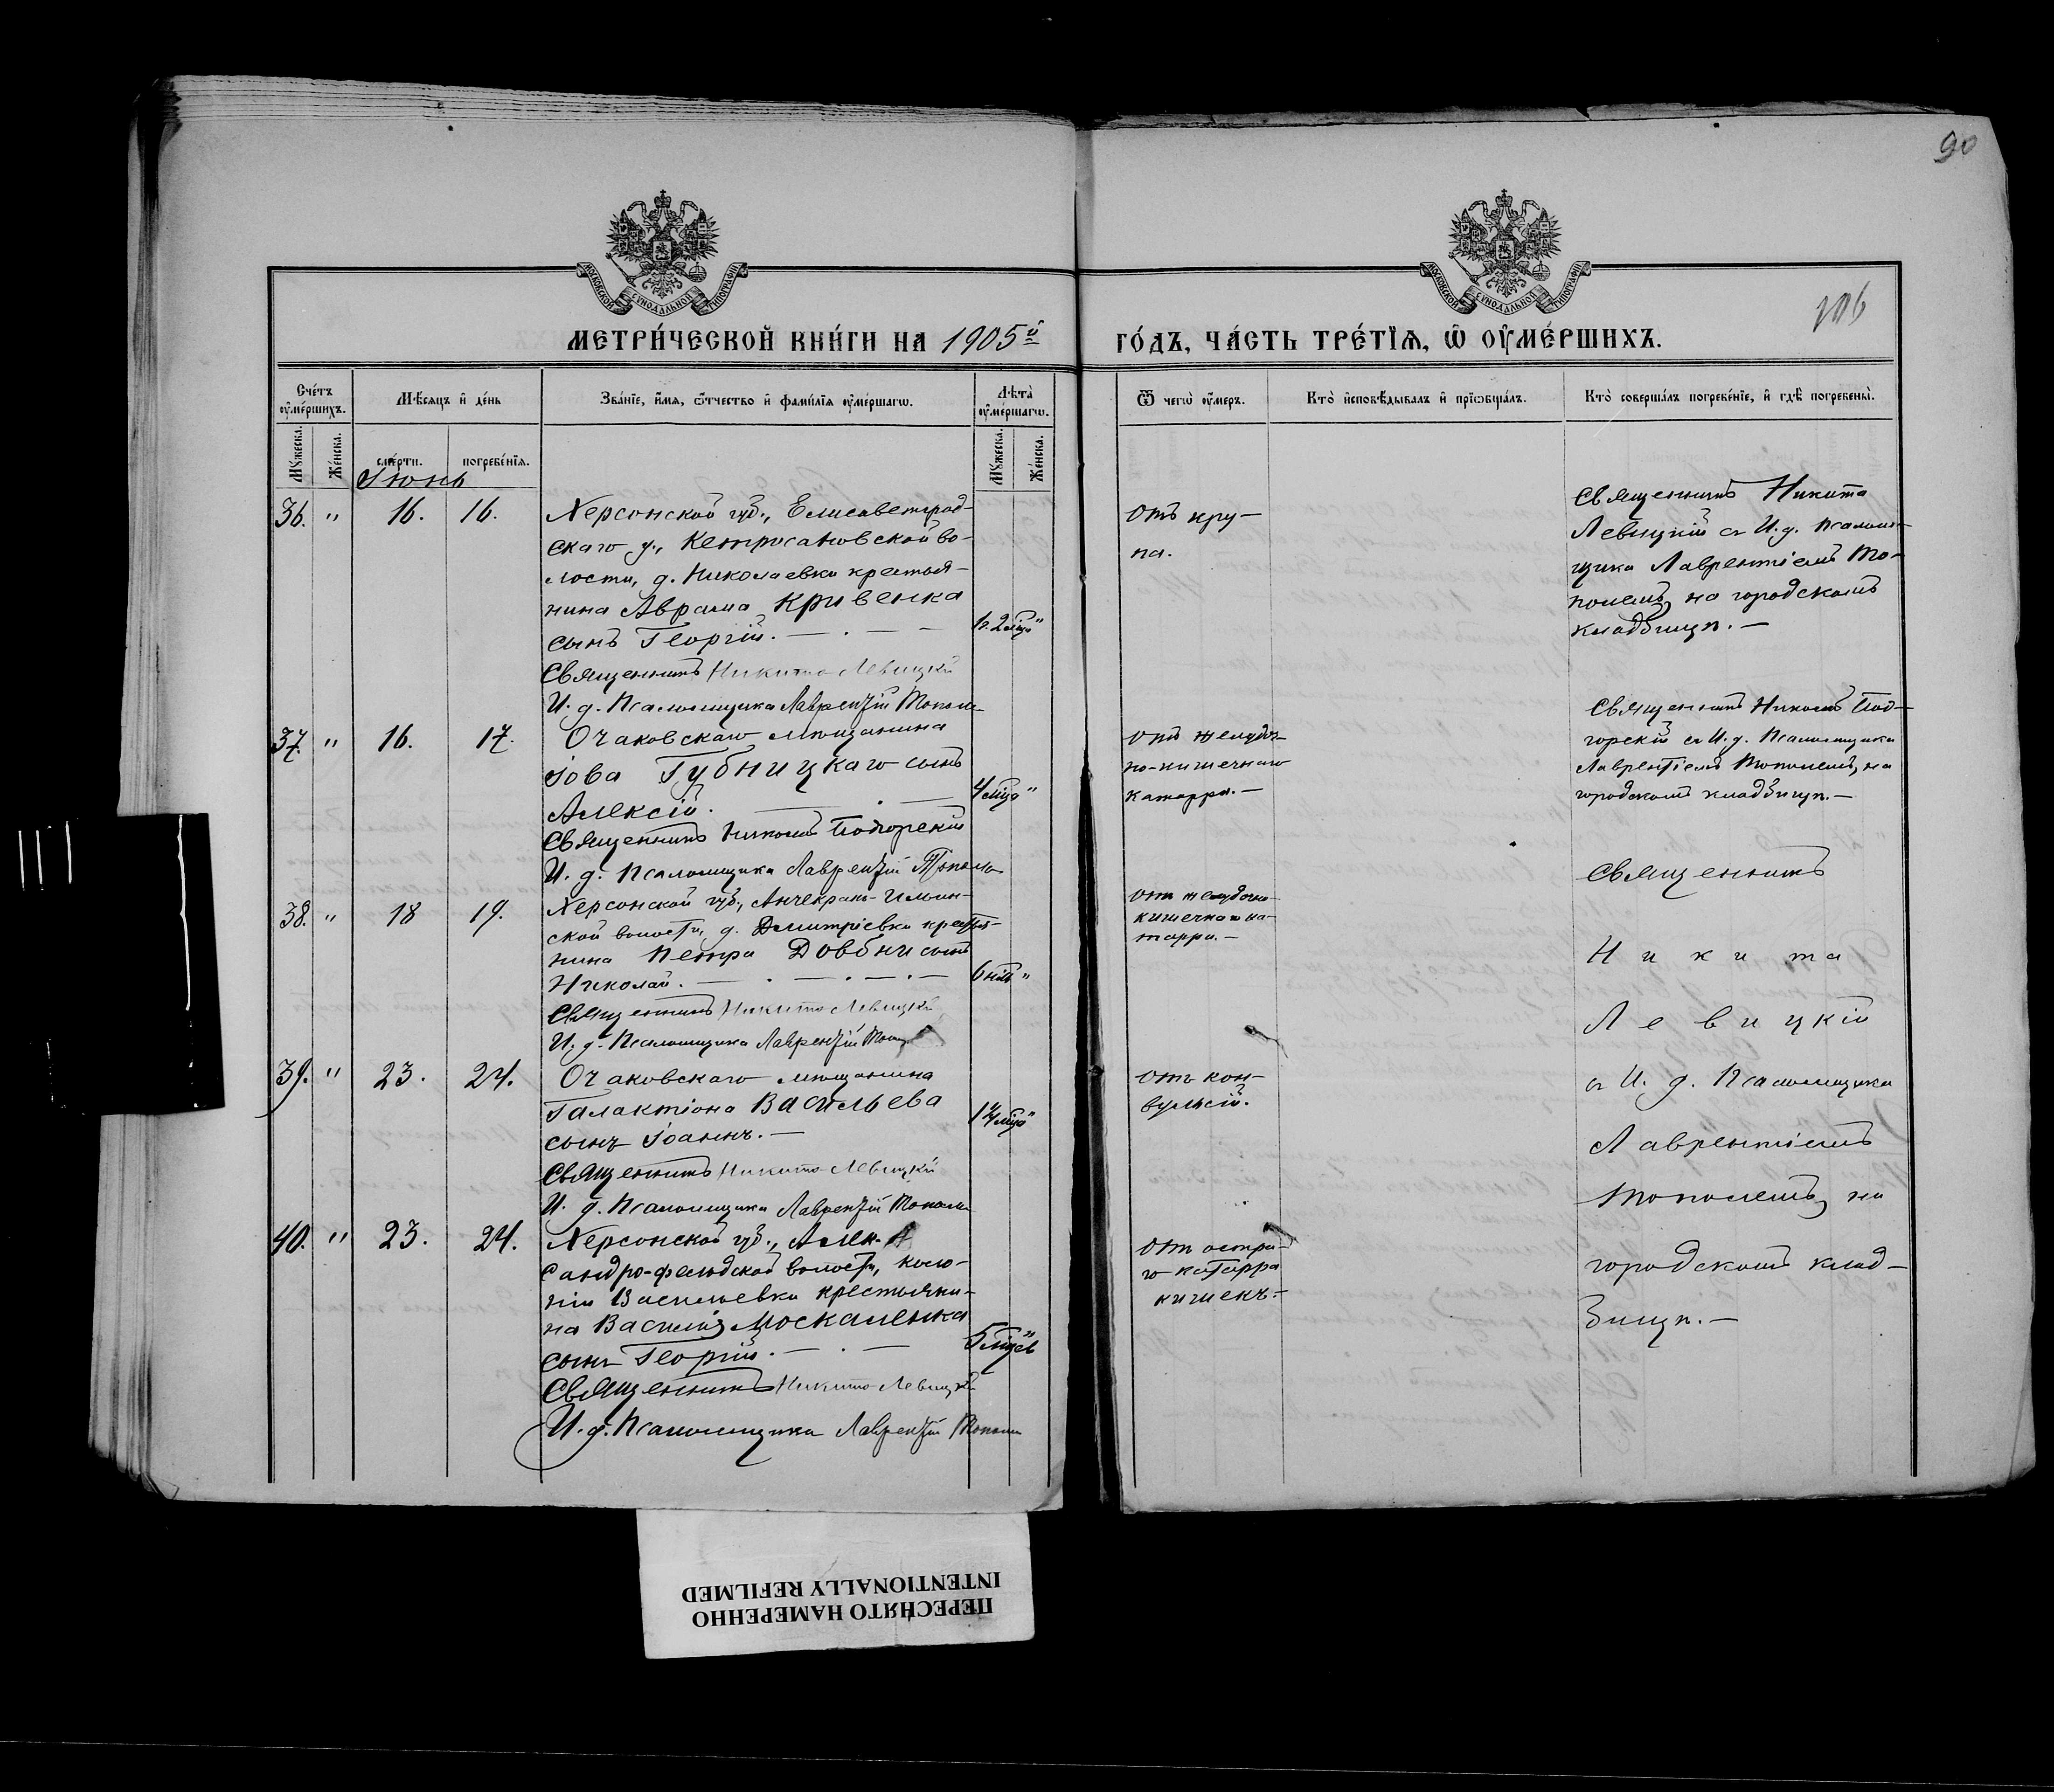 90
МОСКОВСКОЙ СѴНОДАЛЬНОЙ ТИПОГРАФІИ
МОСКОВСКОЙ СѴНОДАЛЬНОЙ ТИПОГРАФІИ
МЕТРИ́ЧЕСКОЙ КНИ́ГИ НА 1905й
ГО́ДЪ, ЧА́СТЬ ТРЕ́ТЇѦ, Ѡ ОУМЕ́РШИХЪ.
Сче́тъ оуме́ршихъ.
Мѣ́сяцъ и де́нь
Зва́нїе, и́мя, ѻ́тчество и фами́лїя оуме́ршагѡ.
Лѣта̀ оуме́ршагѡ.
Мꙋ́жеска.
Же́нска.
сме́рти.
погребе́нїя.
Мꙋ́жеска.
Же́нска.
Ѿ чегѡ̀ оу́меръ.
Кто̀ и҆сповѣ́дывалъ и҆ прїѡбща́лъ.
Кто̀ соверша́лъ погребе́нїе, и҆ гдѣ̀ погребены̀.
Іюнь
36. " 16. 16.
Херсонской губ., Елисаветград-
скаго у., Кетрисановской во-
лости, д. Николаевки крестья-
нина Аврама Кривенка
сынъ Георгій. — . — —
1 г. 2 мѣс "
Священникъ Никита Левицкій
И. д. Псаломщика Лаврентій Тополь
Отъ кру-
па.
Священникъ Никита
Левицкій съ И. д. Псалом-
щика Лаврентіемъ То-
полемъ, на городскомъ
кладбищѣ. —
37. " 16. 17.
Очаковскаго мѣщанина
Іова Губницкаго сынъ
Алексій. — . —
4 мѣс "
Священникъ Николай Подгорскій
И. д. Псаломщика Лаврентій Тополь
отъ желудоч-
но-кишечнаго
катарра. —
Священникъ Николай Под-
горскій съ И. д. Псаломщика
Лаврентіемъ Тополемъ, на
городскомъ кладбищѣ. —
38. " 18 19.
Херсонской губ., Анчекракъ-Илиин-
ской волости, д. Дмитріевки крестья-
нина Петра Довбни сынъ
Николай. — . — . — . —
6 "
Священникъ Никита Левицкій
И. д. Псаломщика Лаврентій
отъ желудочно-
кишечнаго ка-
тарра. —
Священникъ
Никита
Левицкій
съ И. д. Псаломщика
Лаврентіемъ
Тополемъ, на
городскомъ клад-
бищѣ. —
39. " 23. 24.
Очаковскаго мѣщанина
Галактіона Васильева
сынъ Іоаннъ. —
"
Священникъ Никита Левицкій
И. д. Псаломщика Лаврентій Тополь
отъ кон-
вульсій.
40. " 23. 24.
Херсонской губ., Алек-
сандро-фельдской волости, коло-
ніи Васильевки крестьяни-
на Василія Москаленка
сынъ Георгій. — . —
5 мѣсцевъ "
Священникъ Никита Левицкій
И. д. Псаломщика Лаврентій Тополь
отъ остра-
го катарра
кишекъ. —
ПЕРЕСНЯТО НАМЕРЕННО
INTENTIONALLY REFILMED